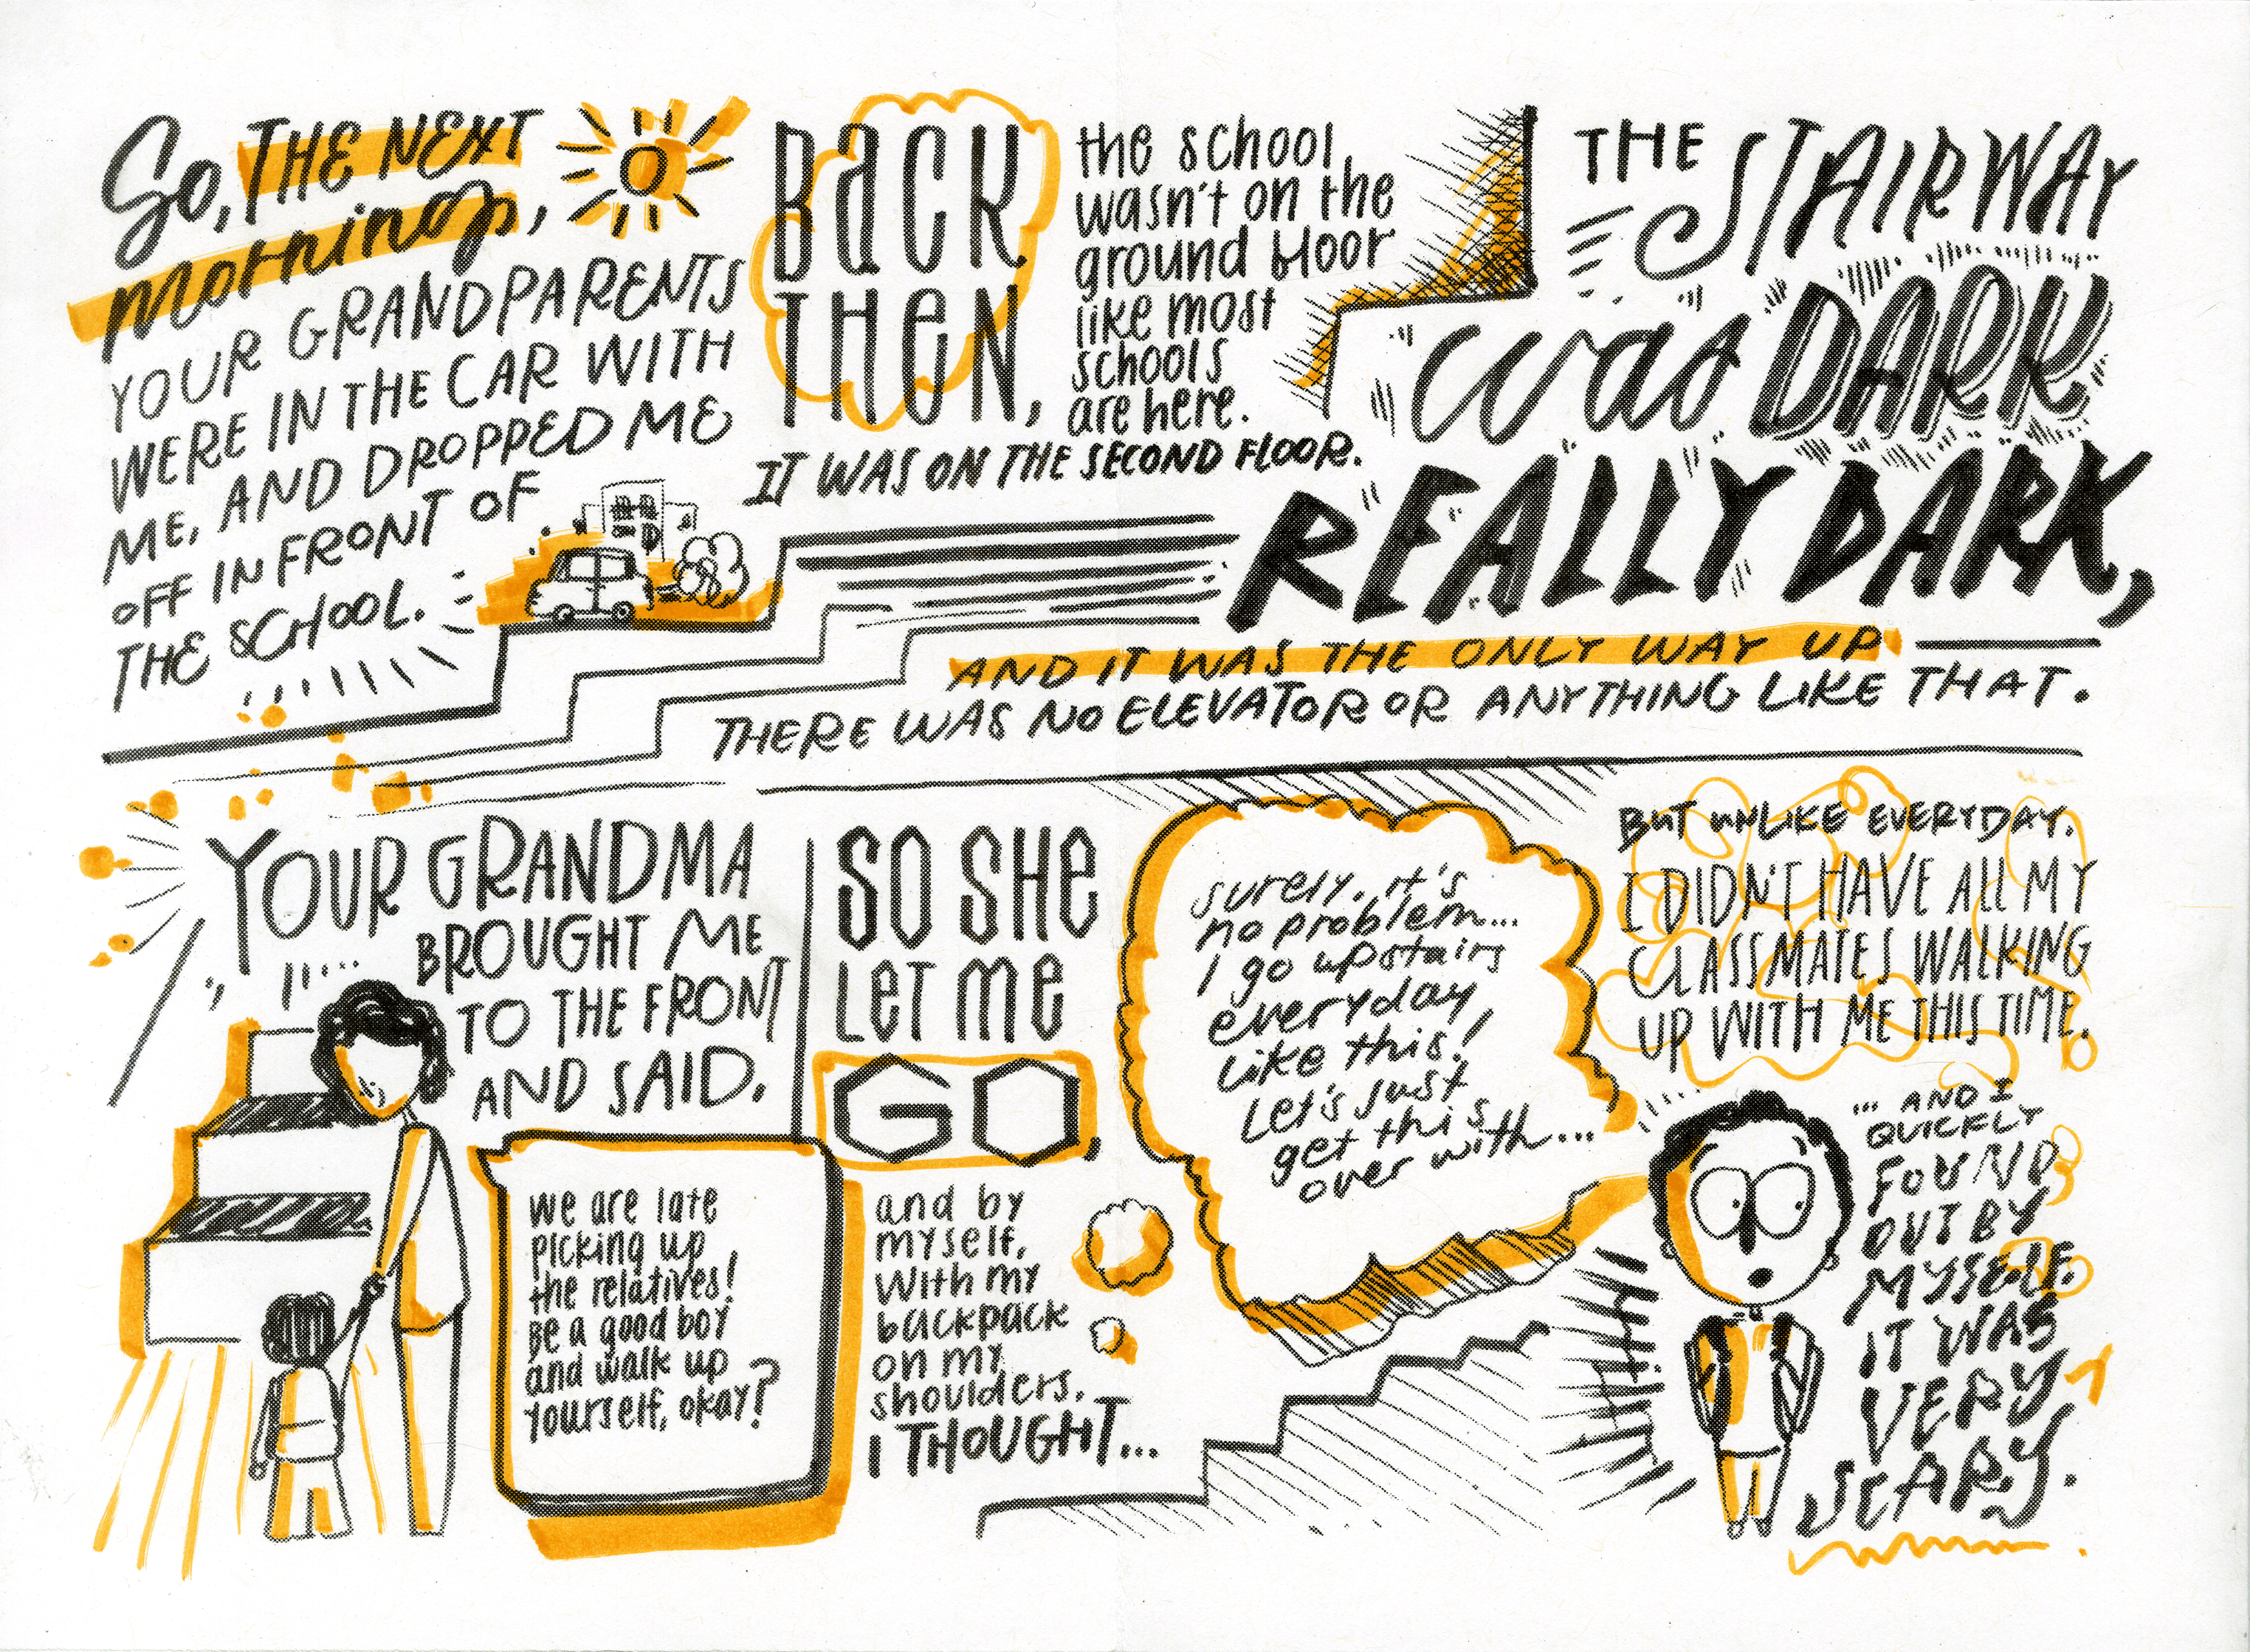 So, THE NEXT
morning,
YOUR GRANDPARENTS
WERE IN THE CAR WITH
ME, AND DROPPED ME
OFF IN FRONT OF
THE SCHOOL.
BACK
THEN,
the school
wasn't on the
ground floor
like most
schools
are here.
IT WAS ON THE SECOND FLOOR.
THE STAIRWAY
was DARK
REALLY DARK,
AND IT WAS THE ONLY WAY UP
THERE WAS NO ELEVATOR OR ANYTHING LIKE THAT.
YOUR GRANDMA
BROUGHT ME
TO THE FRONT
AND SAID,
We are late
picking up
the relatives!
Be a good boy
and walk up
yourself, okay?
SO SHE
LET ME
GO,
and by
myself,
with my
backpack
on my
shoulders,
I THOUGHT...
surely, it's
no problem...
I go upstairs
everyday
like this!
Let's just
get this
over with...
BUT UNLIKE EVERYDAY,
I DIDN'T HAVE ALL MY
CLASSMATES WALKING
UP WITH ME THIS TIME,
... AND I
QUICKLY
FOUND
OUT BY
MYSELF,
IT WAS
VERY
SCARY.